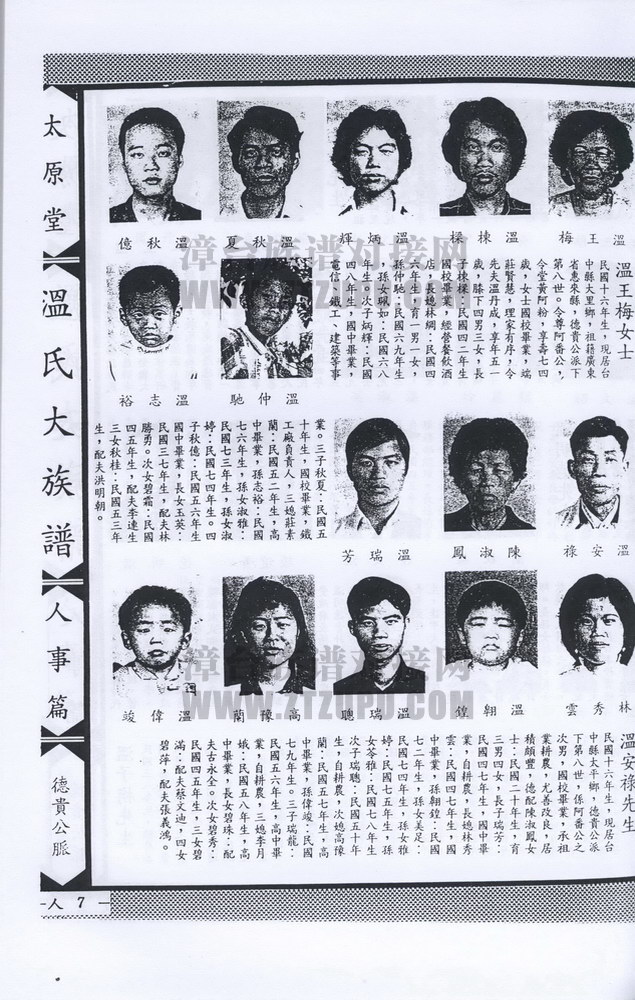 太原堂
溫氏大族譜
人事篇
德貴公脈
人 7
溫王梅
溫棟樑
溫炳輝
溫秋夏
溫秋億
溫仲馳
溫志裕
溫王梅女士
民國十六年生，現居台
中縣大里鄉，祖籍廣東
省惠來縣，德貴公派下
第八世。令尊阿番公，
令堂黃阿粉，享壽七四
歲，女士國校畢業，端
莊賢慧，理家有序，令
先夫溫丹成，享年五一
歲，膝下四男三女，長
子棟樑：民國四二年生
國校畢業，經營餐飲酒
店，長媳林綢：民國四
六年生，育一男一女，
孫仲馳：民國六九年生
，孫女珮如：民國六八
年生。次子炳輝：民國
四八年生，國中畢業，
電信、鐵工、建築等事
業。三子秋夏：民國五
十年生，國校畢業，鐵
工廠負責人，三媳莊素
蘭：民國五二年生，高
中畢業，孫志裕：民國
七六年生，孫女淑雅：
民國七三年生，孫女淑
婷：民國七四年生。四
子秋億：民國五六年生
國中畢業，長女玉英：
民國三七年生，配夫林
勝勇。次女碧霜：民國
四五年生，配夫李連生
三女秋桂：民國五三年
生，配夫洪明朝。
溫安祿
陳淑鳳
溫瑞芳
林秀雲
溫翱鍠
溫瑞聰
高豫蘭
溫偉竣
溫安祿先生
民國十六年生，現居台
中縣太平鄉，德貴公派
下第八世，係阿番公之
次男，國校畢業，承祖
業耕農，尤善改良，居
積頗豐，德配陳淑鳳女
士：民國二十年生，育
三男四女，長子瑞芳：
民國四七年生，國中畢
業，自耕農，長媳林秀
雲：民國四七年生，國
中畢業，孫翱鍠：民國
七二年生，孫女美足：
民國七四年生，孫雅
婷：民國七五年生，孫
女苓雅：民國七八年生
次子瑞聰：民國五十年
生，自耕農，次媳高豫
蘭：民國五七年生，高
中畢業，孫偉竣：民國
七九年生。三子瑞龍：
民國五六年生，高中畢
業，自耕農，三媳李月
娥：民國五八年生，高
中畢業，長女碧珠：配
夫古永全。次女碧秀：
民國四五年生，三女碧
滿：配夫蔡文迪，四女
碧萍，配夫張義鴻。
漳台族谱对接网
漳台族谱对接网